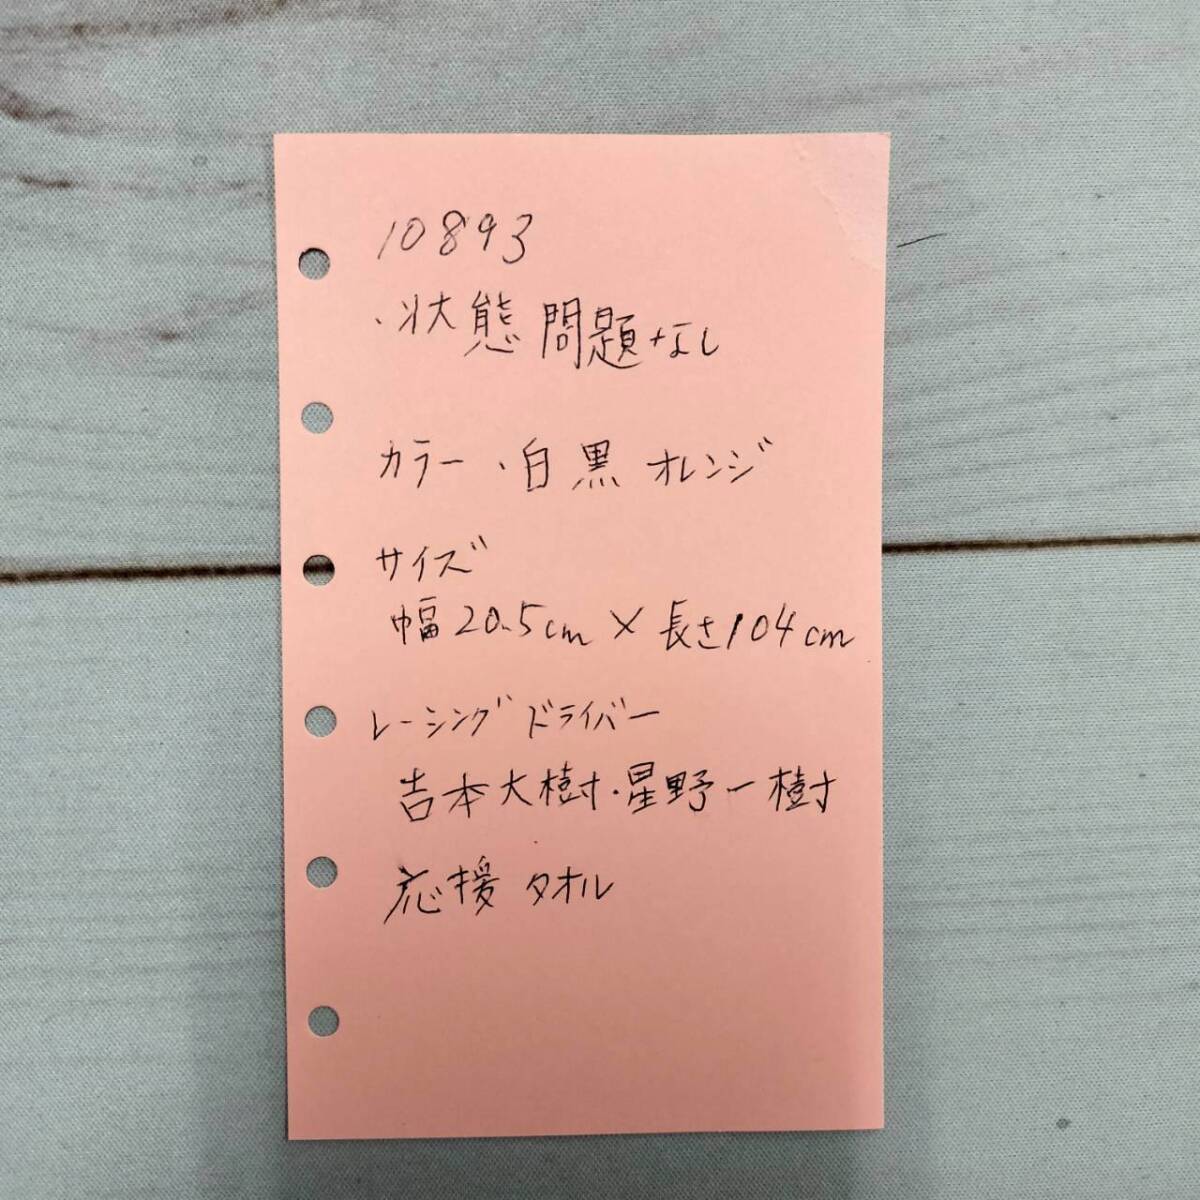 10893
・状態問題なし
カラー・白黒オレンジ
サイズ
幅20.5cm×長さ104cm
レーシングドライバー
吉本大樹・星野一樹
応援タオル